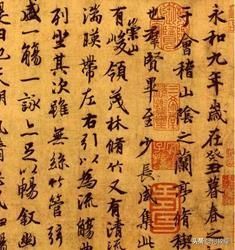 永和九年歲在癸丑暮春之
于會稽山陰之蘭亭脩
也羣賢畢至少長咸集此
有崇山峻領茂林脩竹又有清
湍暎帶左右引以為流觴
列坐其次雖無絲竹管
盛一觴一詠亦足以暢敘幽